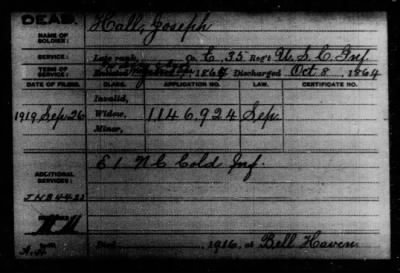 DEAD.
NAME OF SOLDIER: Hall, Joseph
SERVICE: Late rank, Co. E, 35 Reg't U. S. C. Inf.
TERM OF SERVICE: Enlisted 1864 Discharged Oct 8, 1864
DATE OF FILING. CLASS. APPLICATION NO. LAW. CERTIFICATE NO.
Invalid,
1919, Sep. 26 Widow, 1146,924 Sep.
Minor,
E 1 N C Cold Inf.
ADDITIONAL SERVICES:
Died 1916, at Bell Haven